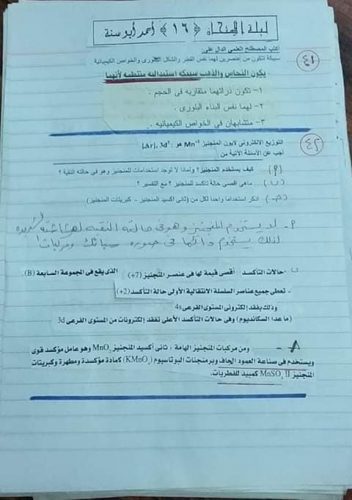 ليلة الامتحان ﴿ ١٦ ﴾ أحمد أبو سنة
٤١
اكتب المصطلح العلمى الدال على:
سبيكة تتكون من عنصرين لهما نفس القطر والشكل البللورى والخواص الكيميائية
يكون النحاس والذهب سبيكة استبدالية منتظمة لأنهما
١- تكون ذراتهما متقاربة فى الحجم .
٢- لهما نفس البناء البلورى .
٣- متشابهان فى الخواص الكيميائية .
٤٢
التوزيع الالكترونى لأيون المنجنيز Mn⁺² هو [Ar], 3d⁵
أجب عن الأسئلة الآتية من
(أ) كيف يستخدم المنجنيز؟ ولماذا لا توجد استخدامات للمنجنيز وهو فى حالته النقية ؟
(ب) ما هى أقصى حالة تأكسد للمنجنيز ؟ مع التفسير ؟
(جـ) اذكر استخداما واحدا لكل من (ثانى أكسيد المنجنيز - كبريتات المنجنيز)
٩- لا يستخدم المنجنيز وهو فى حالته النقية لهشاشته الشديدة
لذلك يستخدم دائما فى صورة سبائك ومركبات
ب- حالات التأكسد أقصى قيمة لها فى عنصر المنجنيز (7+) الذى يقع فى المجموعة السابعة (B)
- تعطى جميع عناصر السلسلة الانتقالية الأولى حالة التأكسد (2+)
وذلك بفقد إلكترونى المستوى الفرعى 4s
(ما عدا السكانديوم) وفى حالات التأكسد الأعلى تفقد إلكترونات من المستوى الفرعى 3d
ومن مركبات المنجنيز الهامة : ثانى أكسيد المنجنيز MnO₂ وهو عامل مؤكسد قوى
ويستخدم فى صناعة العمود الجاف وبرمنجنات البوتاسيوم (KMnO₄) كمادة مؤكسدة ومطهرة وكبريتات
المنجنيز MnSO₄ II كمبيد للفطريات.